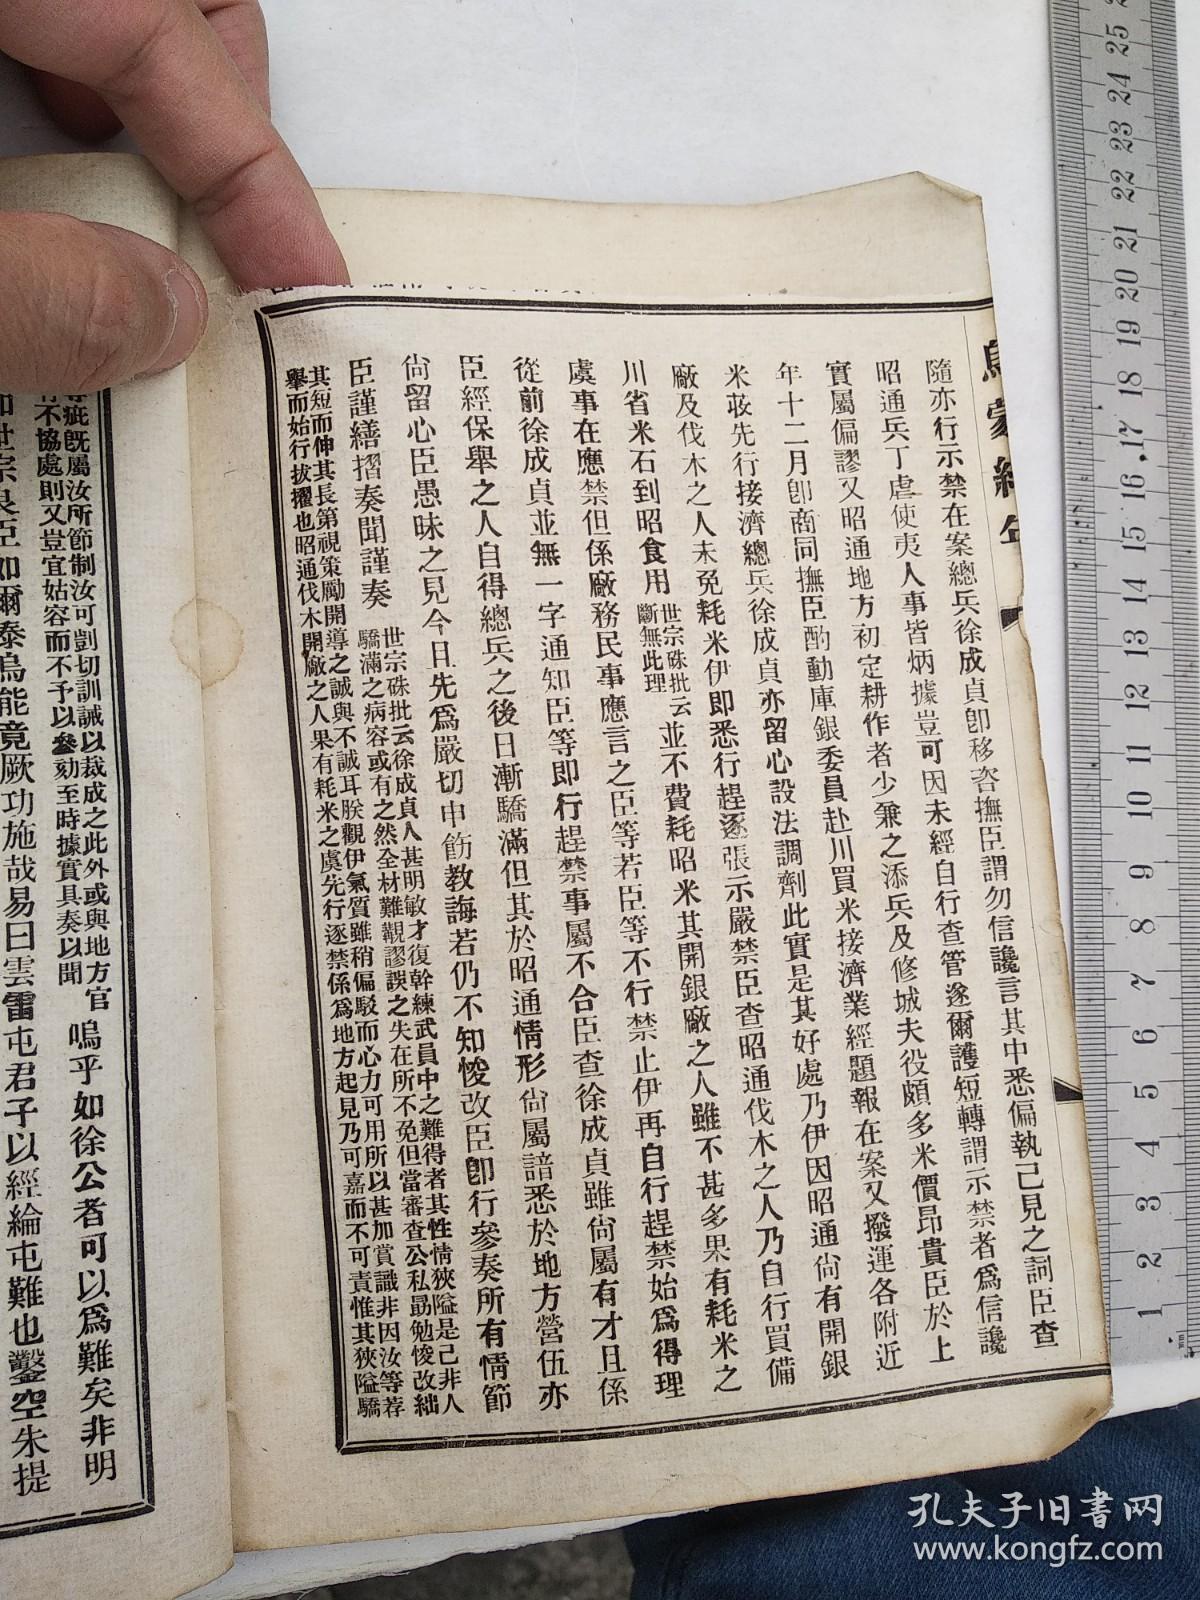 烏蒙紀年
隨亦行示禁在案總兵徐成貞卽移咨撫臣謂勿信讒言其中悉偏執己見之詞臣查
昭通兵丁虐使夷人事皆炳據豈可因未經自行查管遂爾護短轉謂示禁者爲信讒
實屬偏謬又昭通地方初定耕作者少兼之添兵及修城夫役頗多米價昂貴臣於上
年十二月卽商同撫臣酌動庫銀委員赴川買米接濟業經題報在案又撥運各附近
米荍先行接濟總兵徐成貞亦留心設法調劑此實是其好處乃伊因昭通尙有開銀
廠及伐木之人未免耗米伊即悉行趕逐張示嚴禁臣查昭通伐木之人乃自行買備
川省米石到昭食用
世宗硃批云
斷無此理
並不費耗昭米其開銀廠之人雖不甚多果有耗米之
虞事在應禁但係廠務民事應言之臣等若臣等不行禁止伊再自行趕禁始爲得理
從前徐成貞並無一字通知臣等即行趕禁事屬不合臣查徐成貞雖尙屬有才且係
臣經保舉之人自得總兵之後日漸驕滿但其於昭通情形尙屬諳悉於地方營伍亦
尙留心臣愚昧之見今日先爲嚴切申飭教誨若仍不知悛改臣卽行參奏所有情節
臣謹繕摺奏聞謹奏
世宗硃批云徐成貞人甚明敏才復幹練武員中之難得者其性情狹隘是己非人
驕滿之病容或有之然全材難觀謬誤之失在所不免但當審查公私勗勉悛改絀
其短而伸其長第視策勵開導之誠與不誠耳朕觀伊氣質雖稍偏駁而心力可用所以甚加賞識非因汝等荐
舉而始行拔擢也昭通伐木開廠之人果有耗米之虞先行逐禁係爲地方起見乃可嘉而不可責惟其狹隘驕
疵旣屬汝所節制汝可剴切訓誡以裁成之此外或與地方官
不協處則又豈宜姑容而不予以參劾至時據實具奏以聞
嗚乎如徐公者可以爲難矣非明
如世宗良臣如爾泰烏能竟厥功施哉易曰雲雷屯君子以經綸屯難也鑿空朱提
25
24
23
22
21
20
19
18
17
16
15
14
13
12
11
10
9
8
7
6
5
4
3
2
1
孔夫子旧書网
www.kongfz.com